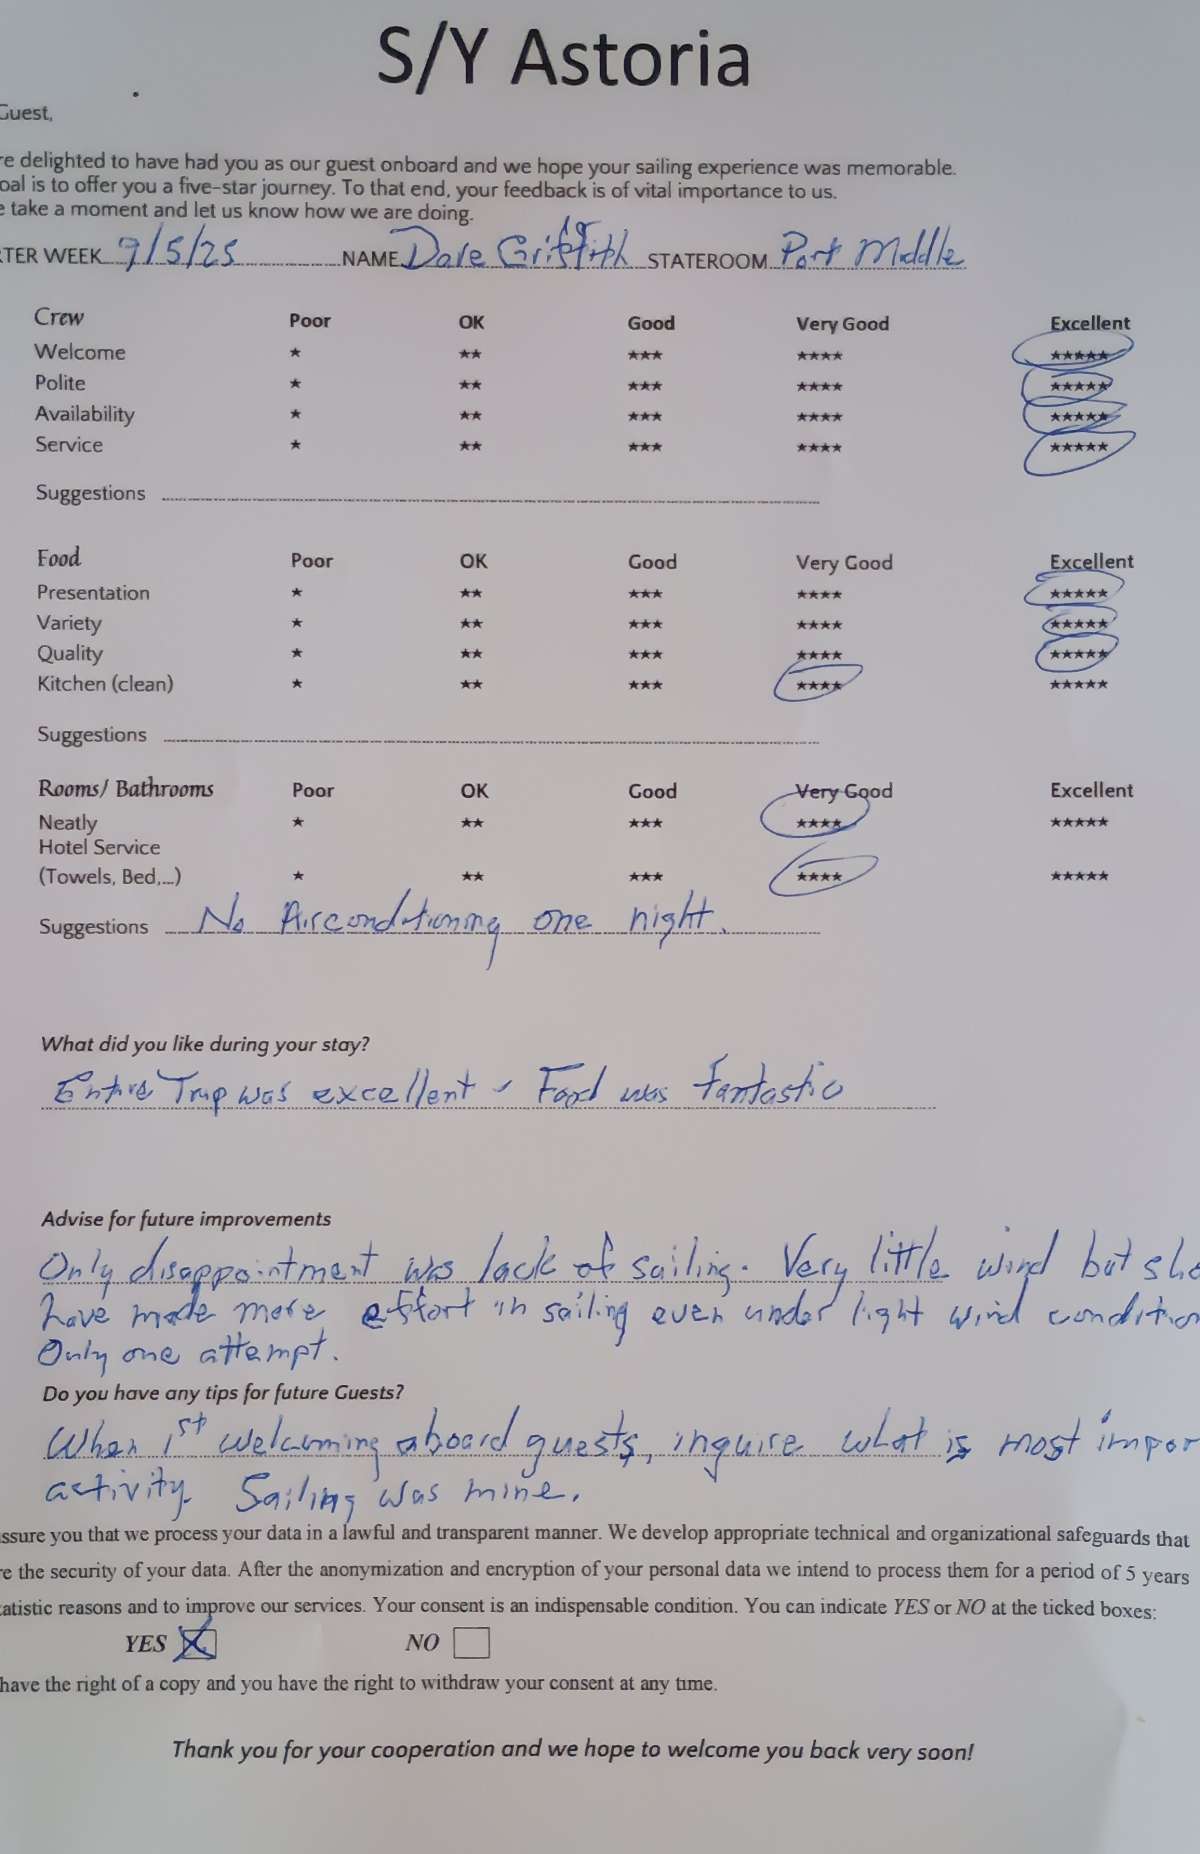 S/Y Astoria
Guest,
re delighted to have had you as our guest onboard and we hope your sailing experience was memorable.
oal is to offer you a five-star journey. To that end, your feedback is of vital importance to us.
e take a moment and let us know how we are doing.
RTER WEEK 9/5/25 NAME Dale Griffith STATEROOM Port Middle
Crew Poor OK Good Very Good Excellent
Welcome ★ ★★ ★★★ ★★★★ ★★★★★
Polite ★ ★★ ★★★ ★★★★ ★★★★★
Availability ★ ★★ ★★★ ★★★★ ★★★★★
Service ★ ★★ ★★★ ★★★★ ★★★★★
Suggestions
Food Poor OK Good Very Good Excellent
Presentation ★ ★★ ★★★ ★★★★ ★★★★★
Variety ★ ★★ ★★★ ★★★★ ★★★★★
Quality ★ ★★ ★★★ ★★★★ ★★★★★
Kitchen (clean) ★ ★★ ★★★ ★★★★ ★★★★★
Suggestions
Rooms/ Bathrooms Poor OK Good Very Good Excellent
Neatly ★ ★★ ★★★ ★★★★ ★★★★★
Hotel Service
(Towels, Bed,...) ★ ★★ ★★★ ★★★★ ★★★★★
Suggestions No Airconditioning one night.
What did you like during your stay?
Entire Trip was excellent - Food was fantastic
Advise for future improvements
Only disappointment was lack of sailing. Very little wind but sho
have made more effort in sailing even under light wind condition
Only one attempt.
Do you have any tips for future Guests?
When 1st welcoming aboard guests, inquire what is most impor
activity. Sailing was mine.
assure you that we process your data in a lawful and transparent manner. We develop appropriate technical and organizational safeguards that
re the security of your data. After the anonymization and encryption of your personal data we intend to process them for a period of 5 years
tatistic reasons and to improve our services. Your consent is an indispensable condition. You can indicate YES or NO at the ticked boxes:
YES X NO
have the right of a copy and you have the right to withdraw your consent at any time.
Thank you for your cooperation and we hope to welcome you back very soon!